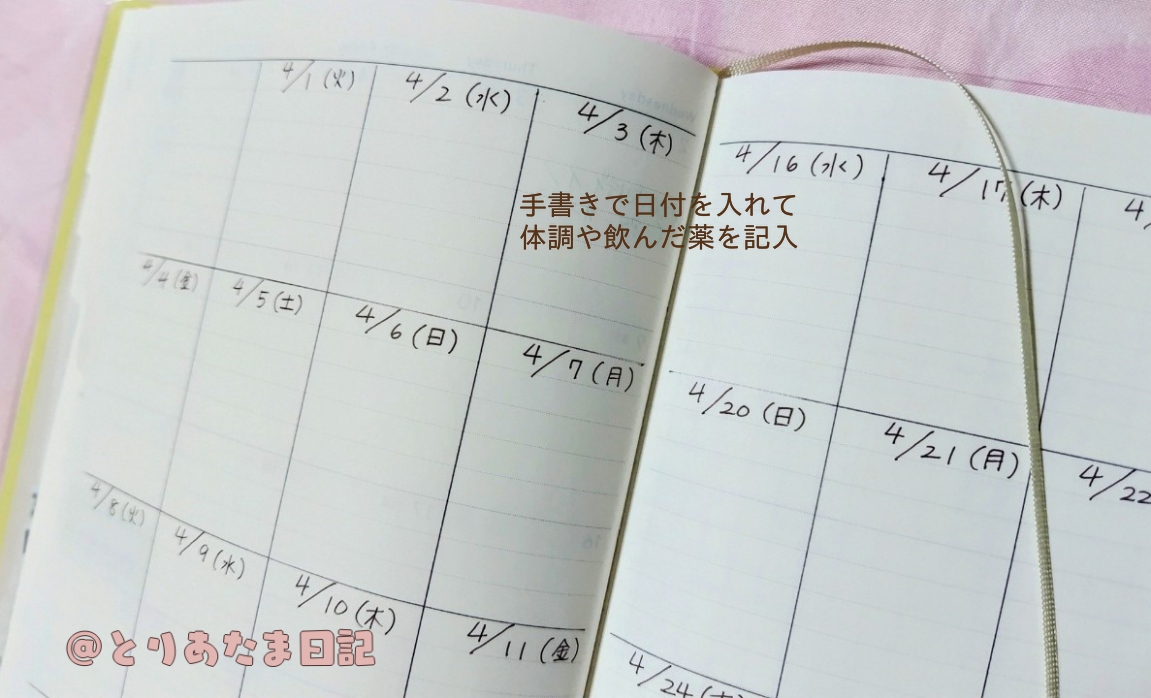 4/1(火)
4/2(水)
4/3(木)
4/4(金)
4/5(土)
4/6(日)
4/7(月)
4/8(火)
4/9(水)
4/10(木)
4/11(金)
4/16(水)
4/17(木)
4/20(日)
4/21(月)
4/22
4/24(木)
手書きで日付を入れて
体調や飲んだ薬を記入
@とりあたま日記